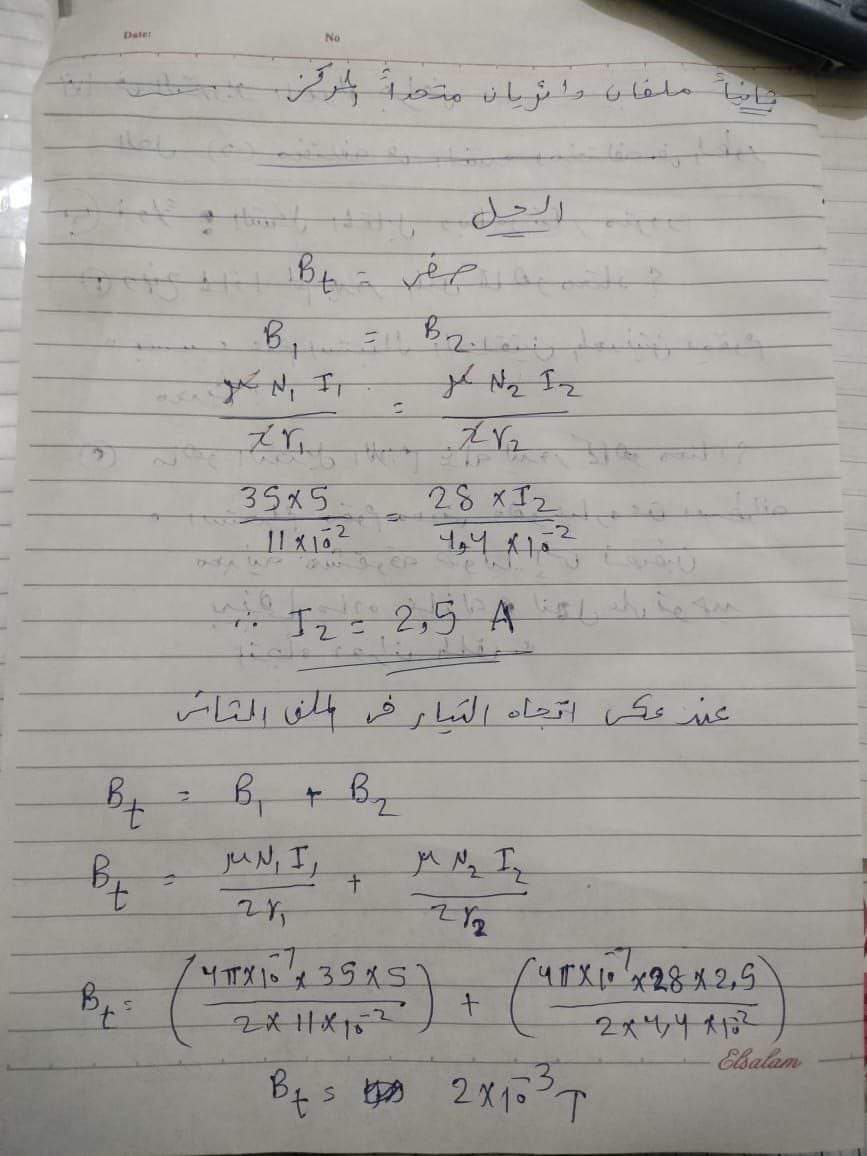 Date:
No
ثانياً ملفان دائريان متحدا المركز
الحل
Bt = صفر
B1 = B2
μ N1 I1 / 2 r1 = μ N2 I2 / 2 r2
35 x 5 / 11 x 10^-2 = 28 x I2 / 4,4 x 10^-2
∴ I2 = 2,5 A
عند عكس اتجاه التيار فى الملف الثانى
Bt = B1 + B2
Bt = μ N1 I1 / 2 r1 + μ N2 I2 / 2 r2
Bt = (4π x 10^-7 x 35 x 5 / 2 x 11 x 10^-2) + (4π x 10^-7 x 28 x 2,5 / 2 x 4,4 x 10^-2)
Elsalam
Bt = 2 x 10^-3 T